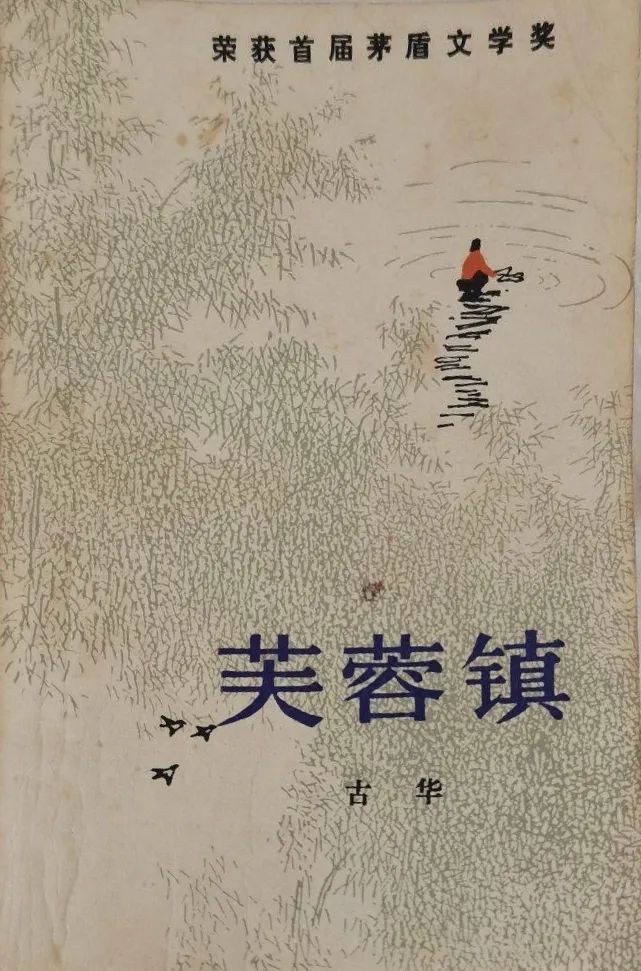 荣获首届茅盾文学奖
芙蓉镇
古华